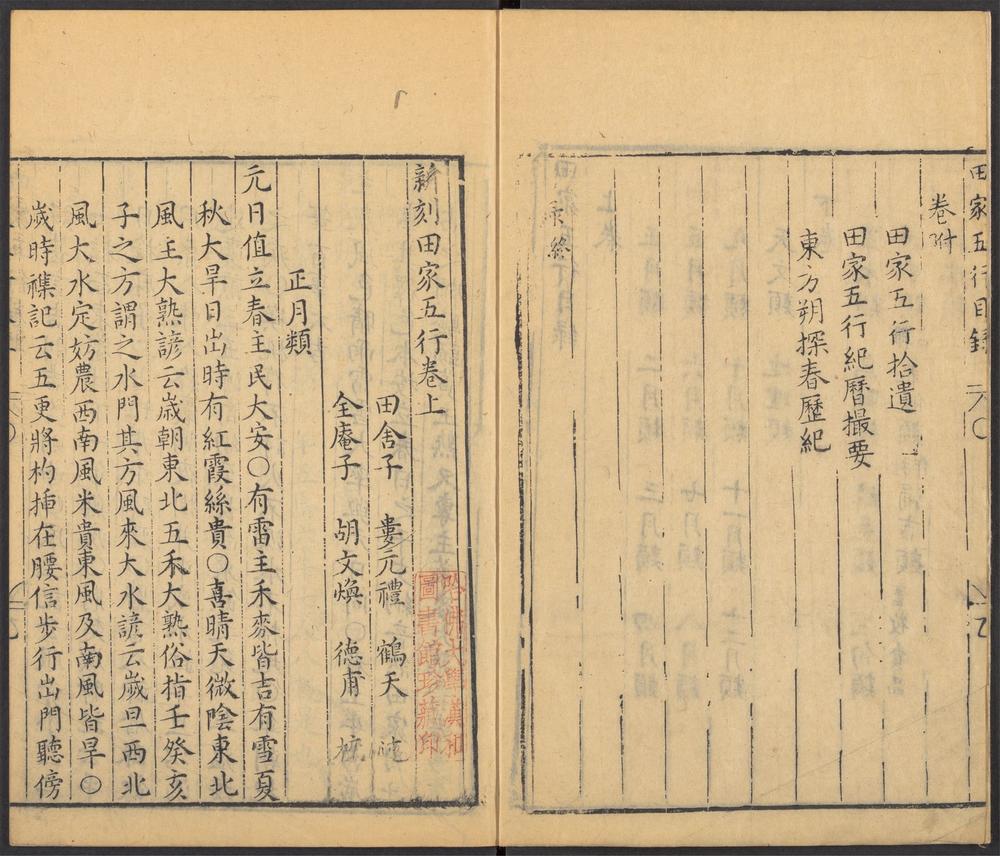 田家五行目錄
卷附
田家五行拾遺
田家五行紀曆撮要
東方朔探春歷紀
錄終
新刻田家五行卷上
田舍子 婁元禮 鶴天 述
全庵子 胡文煥 德甫 校
正月類
元日值立春主民大安〇有雷主禾麥皆吉有雪夏
秋大旱日出時有紅霞絲貴〇喜晴天微陰東北
風主大熟諺云歲朝東北五禾大熟俗指壬癸亥
子之方謂之水門其方風來大水諺云歲旦西北
風大水定妨農西南風米貴東風及南風皆旱〇
歲時襍記云五更將杓揷在腰信步行出門聽傍
哈佛大學漢和
圖書館珍藏印